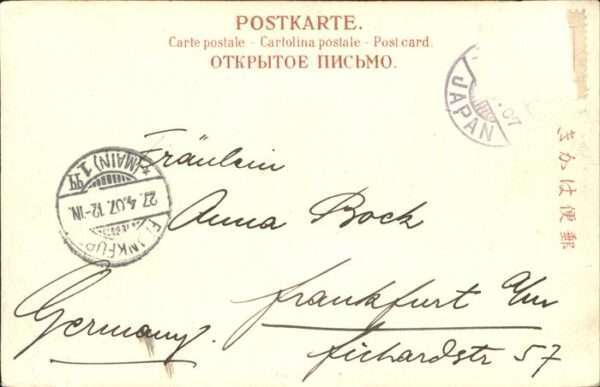 POSTKARTE.
Carte postale - Cartolina postale - Post card.
ОТКРЫТОЕ ПИСЬМО.
JAPAN
07
きかは便郵
(MAIN) 1
27.4.07.12-1N.
Fräulein
Anna Bock
Frankfurt a/m
Fichardstr 57
Germany.